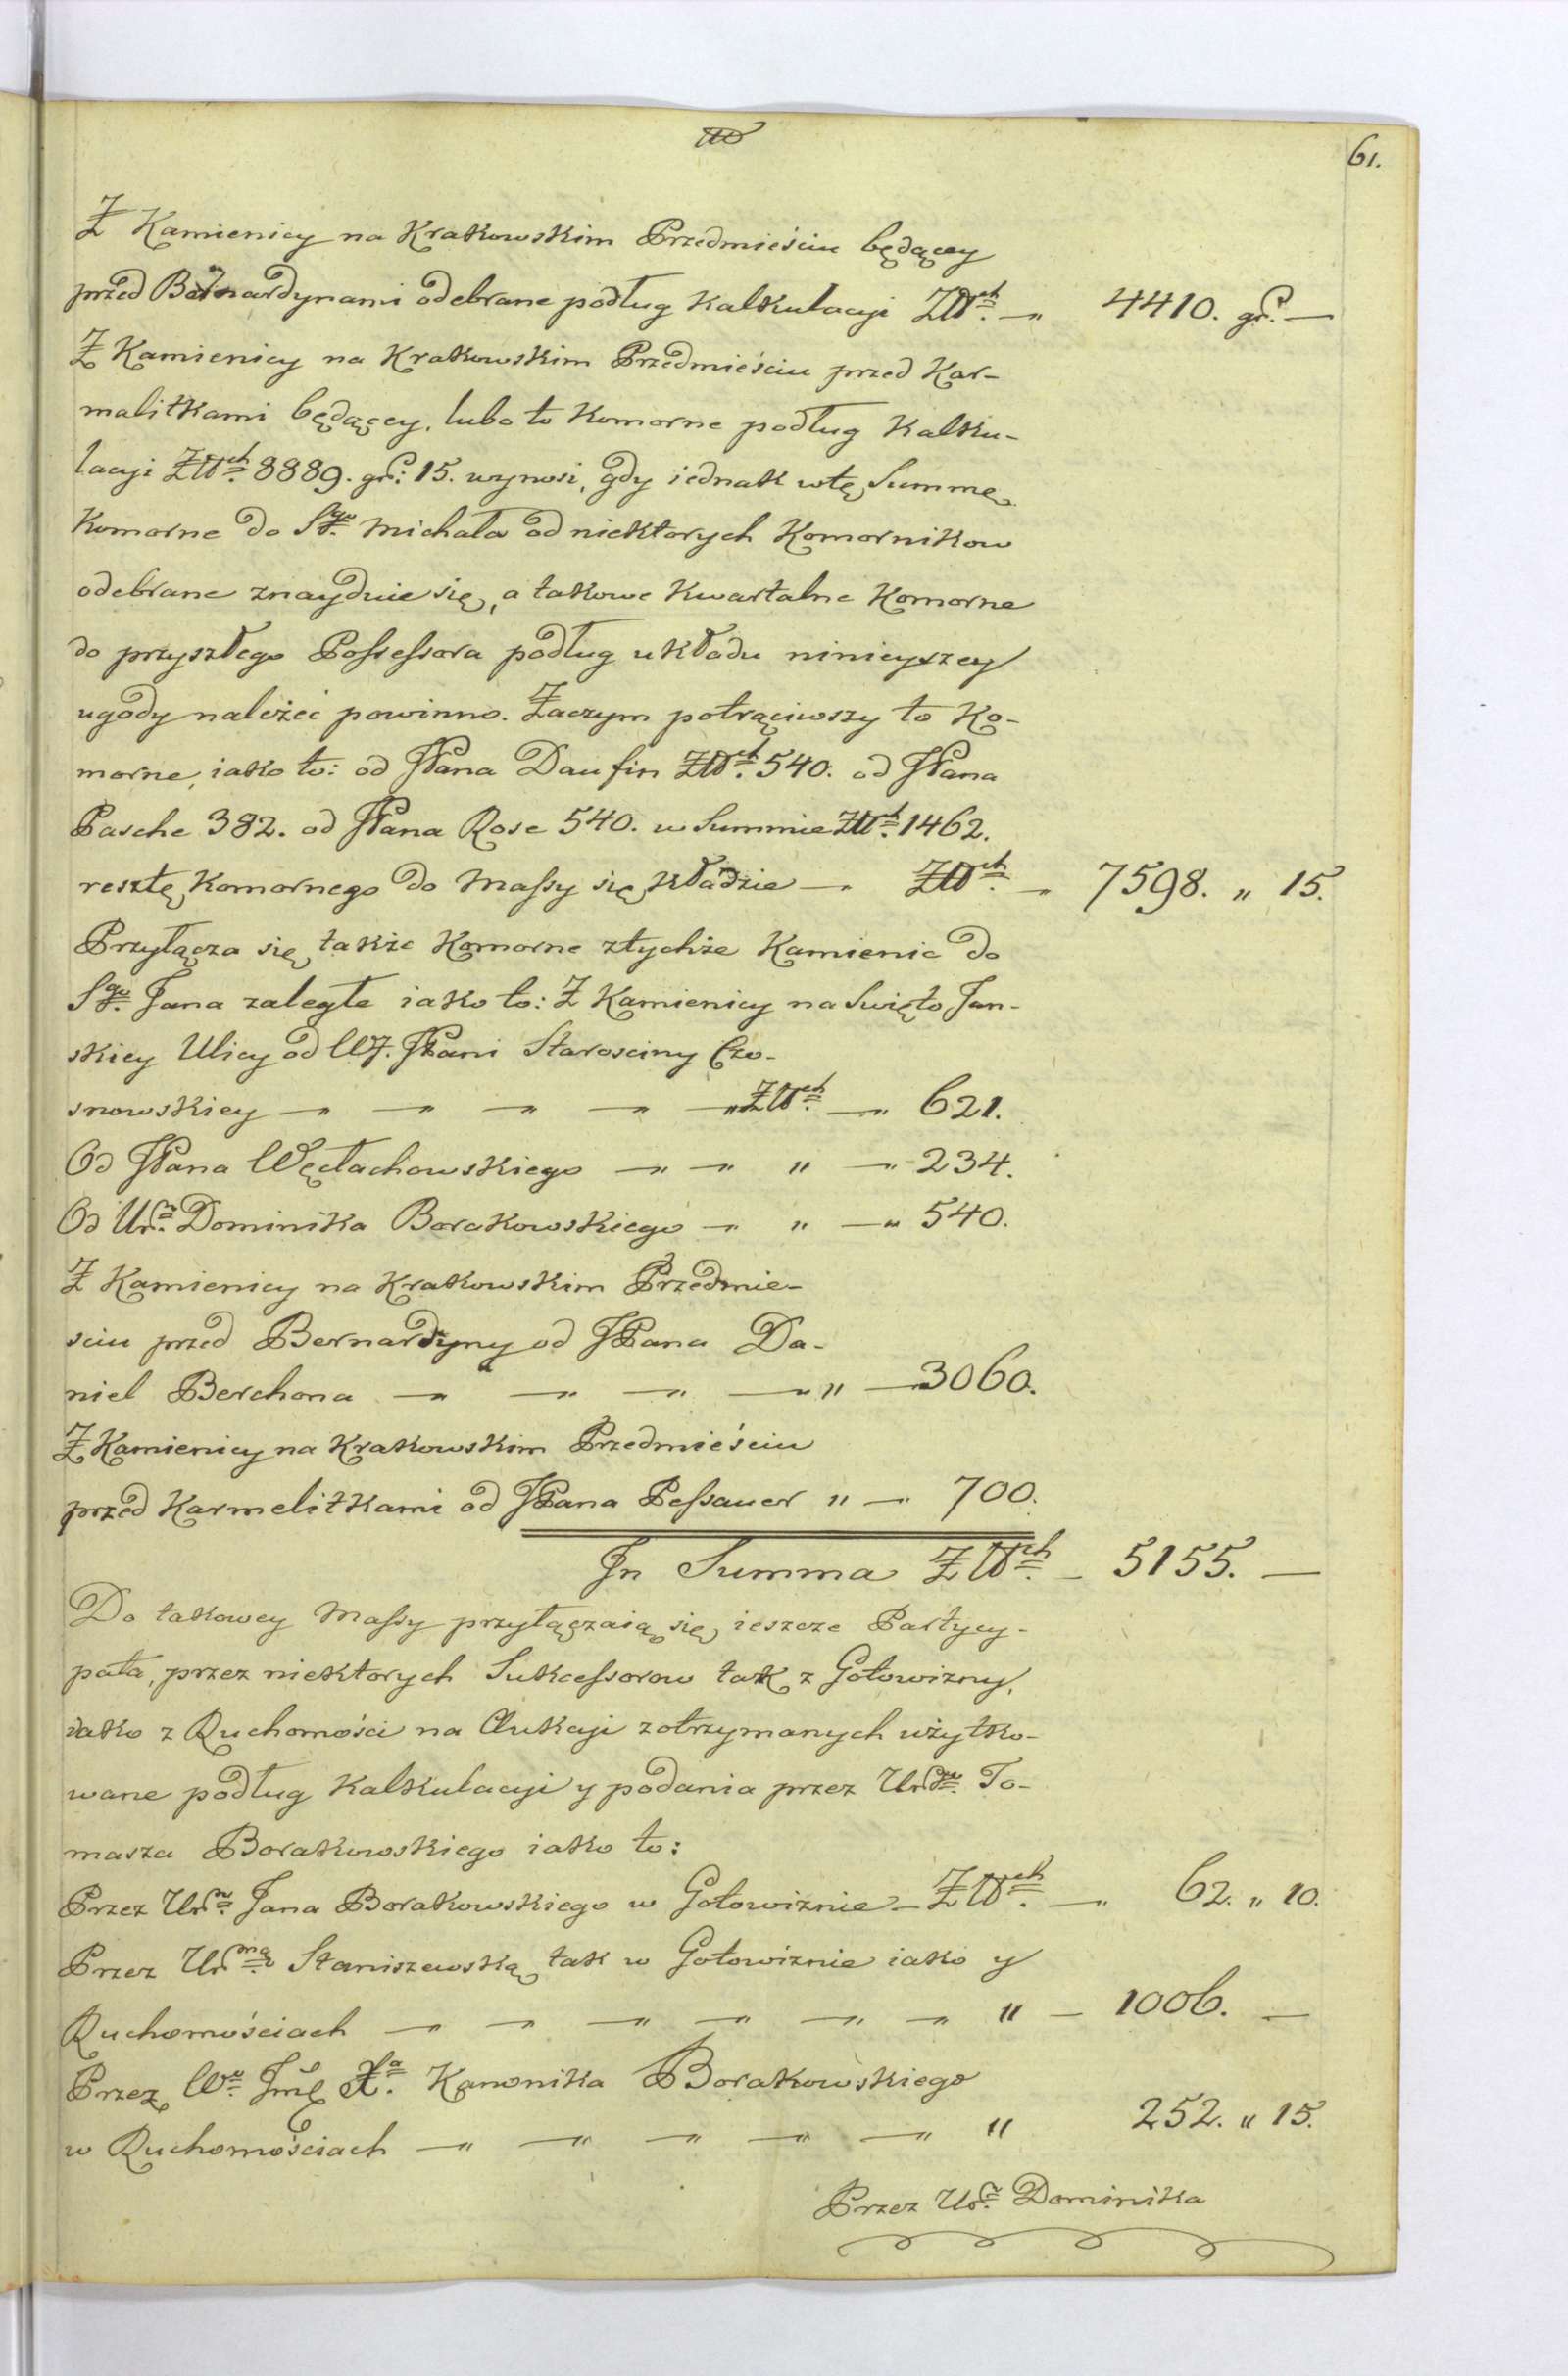 61.
Z Kamienicy na Krakowskim Przedmieściu będącey
przed Bernardynami odebrane podług Kalkulacyi Złłch. — 4410. gr. —
Z Kamienicy na Krakowskim Przedmieściu przed Kar-
malitkami będącey, lubo to Komorne podług Kalku-
lacyi Złłch. 8889. gr: 15. wynosi, gdy iednak wtę Summę
Komorne do Sgo. Michała od niektorych Komornikow
odebrane znayduie się, a takowe Kwartalne Komorne
do przyszłego Possessora podług układu ninieyszey
ugody należeć powinno. Zaczym potrąciwszy to Ko-
morne, iako to: od JPana Daufin Złłch. 540. od JPana
Pasche 382. od JPana Rose 540. w Summie Złłch. 1462.
resztę Komornego do Massy się kładzie — Złłch. — 7598. " 15.
Przyłącza się także Komorne ztychże Kamienic do
Sgo. Jana zaległe iako to: Z Kamienicy na Swięto Jan-
skiey Ulicy od WJ. JPani Starosciny Czo-
snowskiey — — — — — Złłch. — 621.
Od JPana Węclachowskiego — — " — 234.
Od Urn. Dominika Borakowskiego — " — 540.
Z Kamienicy na Krakowskim Przedmie-
sciu przed Bernardyny od JPana Da-
niel Berchona — — — — " — 3060.
Z Kamienicy na Krakowskim Przedmieściu
przed Karmelitkami od JPana Pessauer " — 700.
In Summa Złłch. — 5155. —
Do takowey Massy przyłączaią się ieszcze Partycy-
pata, przez niektorych Sukcessorow tak z Gotowizny,
iako z Ruchomości na Aukcyi zotrzymanych użytko-
wane podług Kalkulacyi y podania przez Urgo. To-
masza Borakowskiego iako to:
Przez Urn. Jana Borakowskiego w Gotowiznie — Złłch. — 62. " 10.
Przez Urną. Staniszewską tak w Gotowiznie iako y
Ruchomościach — — — — — — " — 1006. —
Przez Wo. Jmę Xa. Kanonika Borakowskiego
w Ruchomościach — — — — — " 252. " 15.
Przez Urn. Dominika